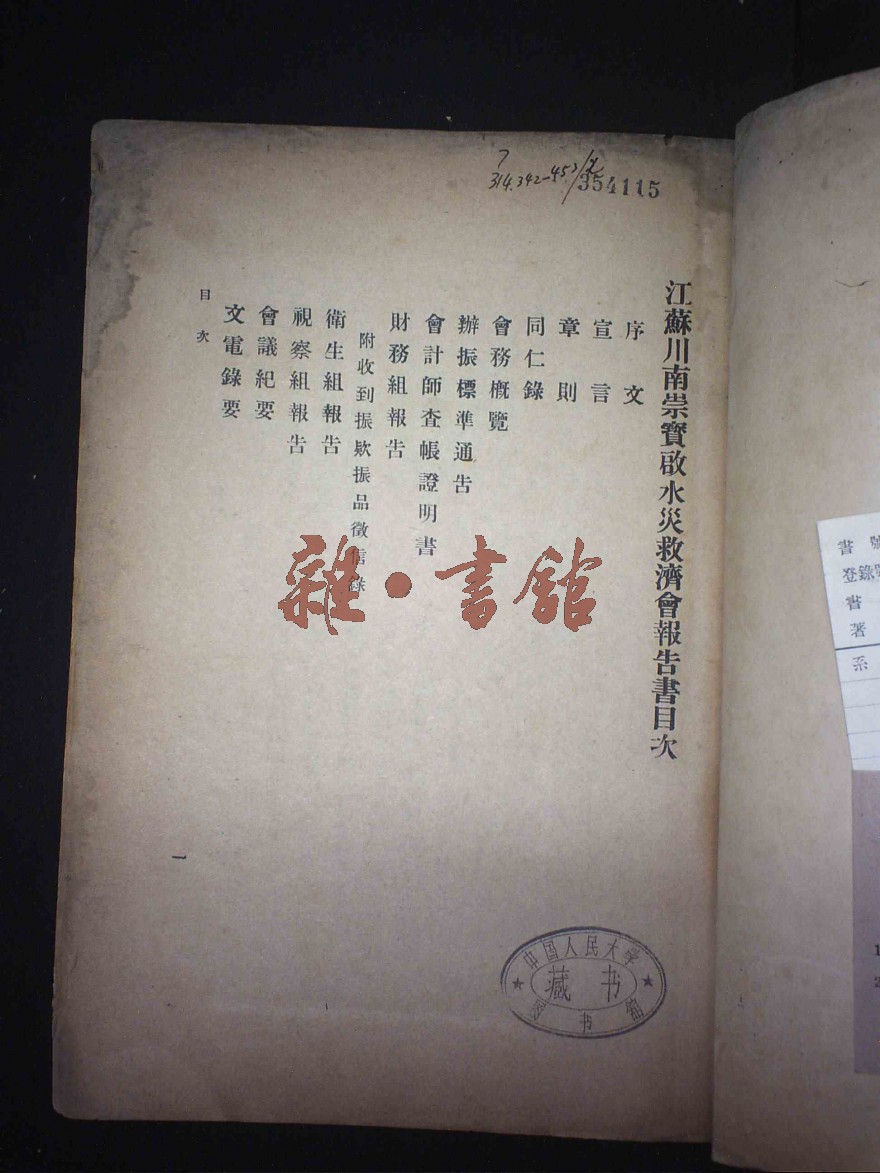 354115
江蘇川南崇寶啟水災救濟會報告書目次
序文
宣言
章則
同仁錄
會務概覽
辦振標準通告
會計師查帳證明書
財務組報告
附收到振欵振品徵信錄
衛生組報告
視察組報告
會議紀要
文電錄要
目次
一
雜·書館
中国人民大学
藏书
图书馆
書號
登錄號
書
著
系